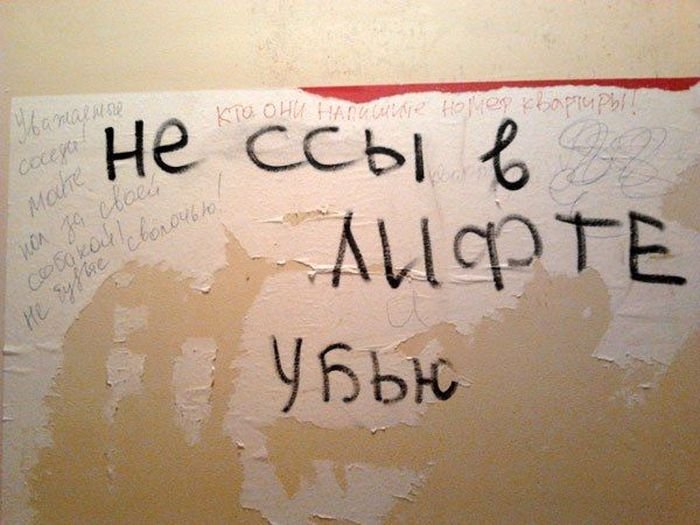 Уважаемые
соседи!
Мойте
пол за своей
собакой!
Не будьте сволочью!
кто они напишите номер квартиры!
не ссы в
ЛИФТЕ
Убью